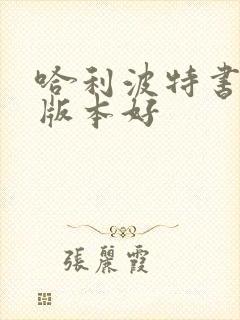 哈利波特书
版本好
張麗霞